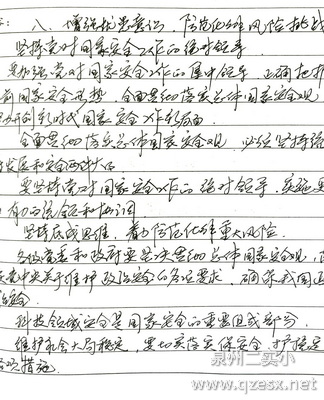 八、增强忧患意识，防范化解风险挑战
坚持党对国家安全工作的绝对领导
要加强党对国家安全工作的集中领导，正确把握
前国家安全形势，全面贯彻落实总体国家安全观
开创新时代国家安全工作新局面
全面贯彻落实总体国家安全观，必须坚持统
发展和安全两件大事
要坚持党对国家安全工作的绝对领导，实施更
有力的统领和协调
坚持底线思维，着力防范化解重大风险
各级党委和政府要坚决贯彻总体国家安全观，
党中央关于维护政治安全的各项要求，确保我国政
治安全
科技领域安全是国家安全的重要组成部分
维护社会大局稳定，要切实落实保安全、护稳定
各项措施
泉州二实小
www.qzesx.net